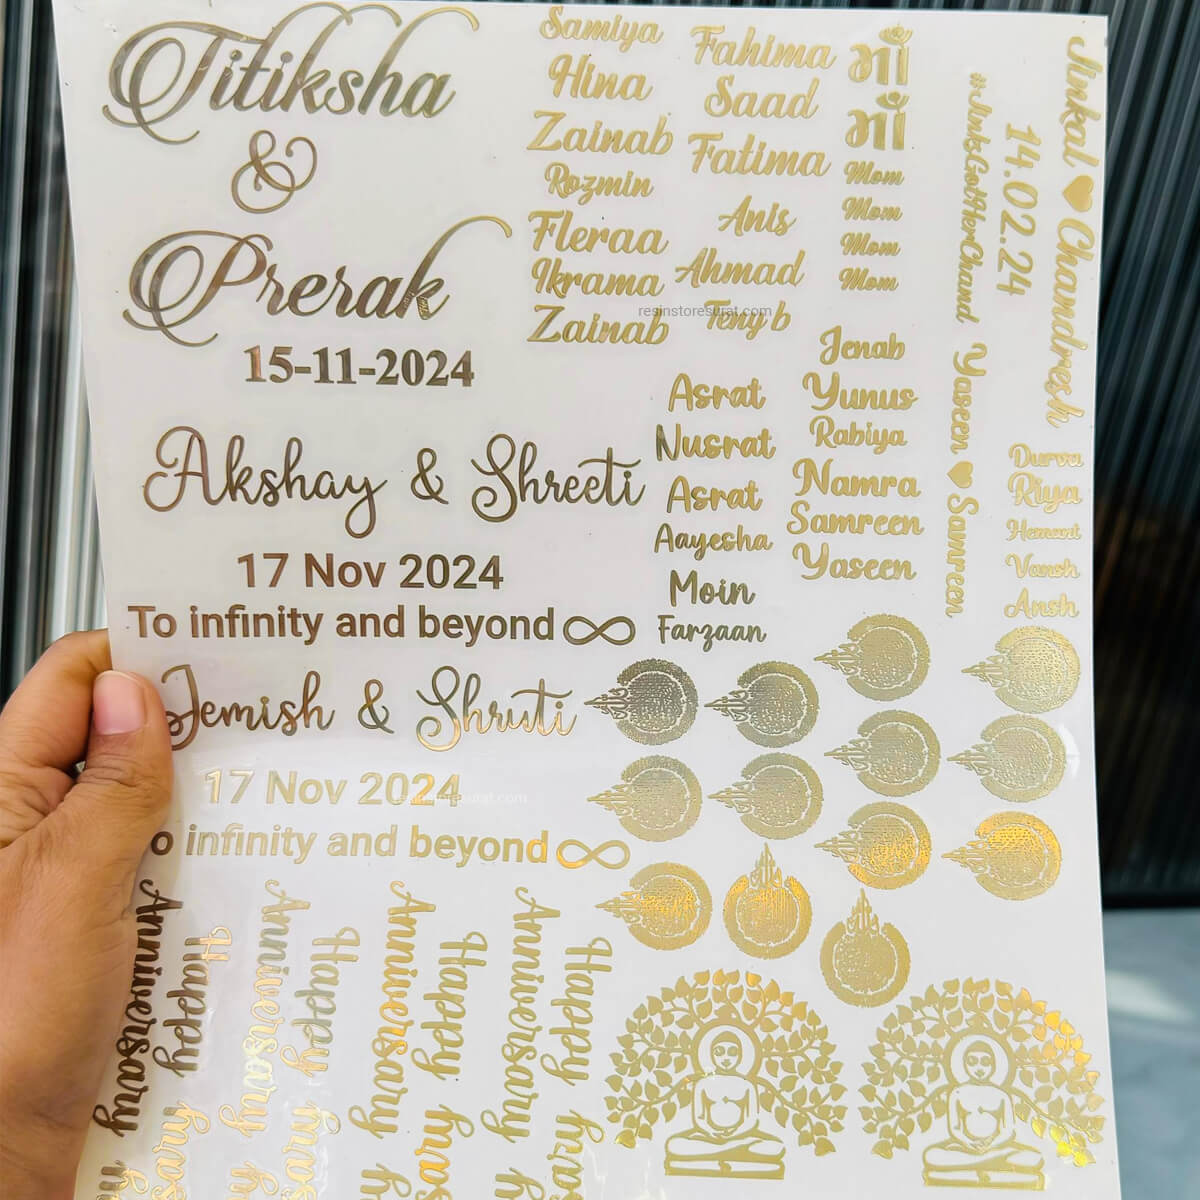 Titiksha
&
Prerak
15-11-2024
Akshay & Shreeti
17 Nov 2024
To infinity and beyond
Jemish & Shruti
17 Nov 2024
o infinity and beyond
Samiya
Hina
Zainab
Rozmin
Fleraa
Ikrama
Zainab
Fahima
Saad
Fatima
Anis
Ahmad
Tenyb
resinstoresurat.com
माँ
माँ
Mom
Mom
Mom
Mom
Asrat
Nusrat
Asrat
Aayesha
Moin
Farzaan
Jenab
Yunus
Rabiya
Namra
Samreen
Yaseen
#JinksGotHerChand
Yaseen ♥ Samreen
14.02.24
Jinkal ♥ Chandresh
Durva
Riya
Hemant
Vansh
Ansh
resinstoresurat.com
Happy
Anniversary
Happy
Anniversary
Happy
Anniversary
Happy
Anniversary